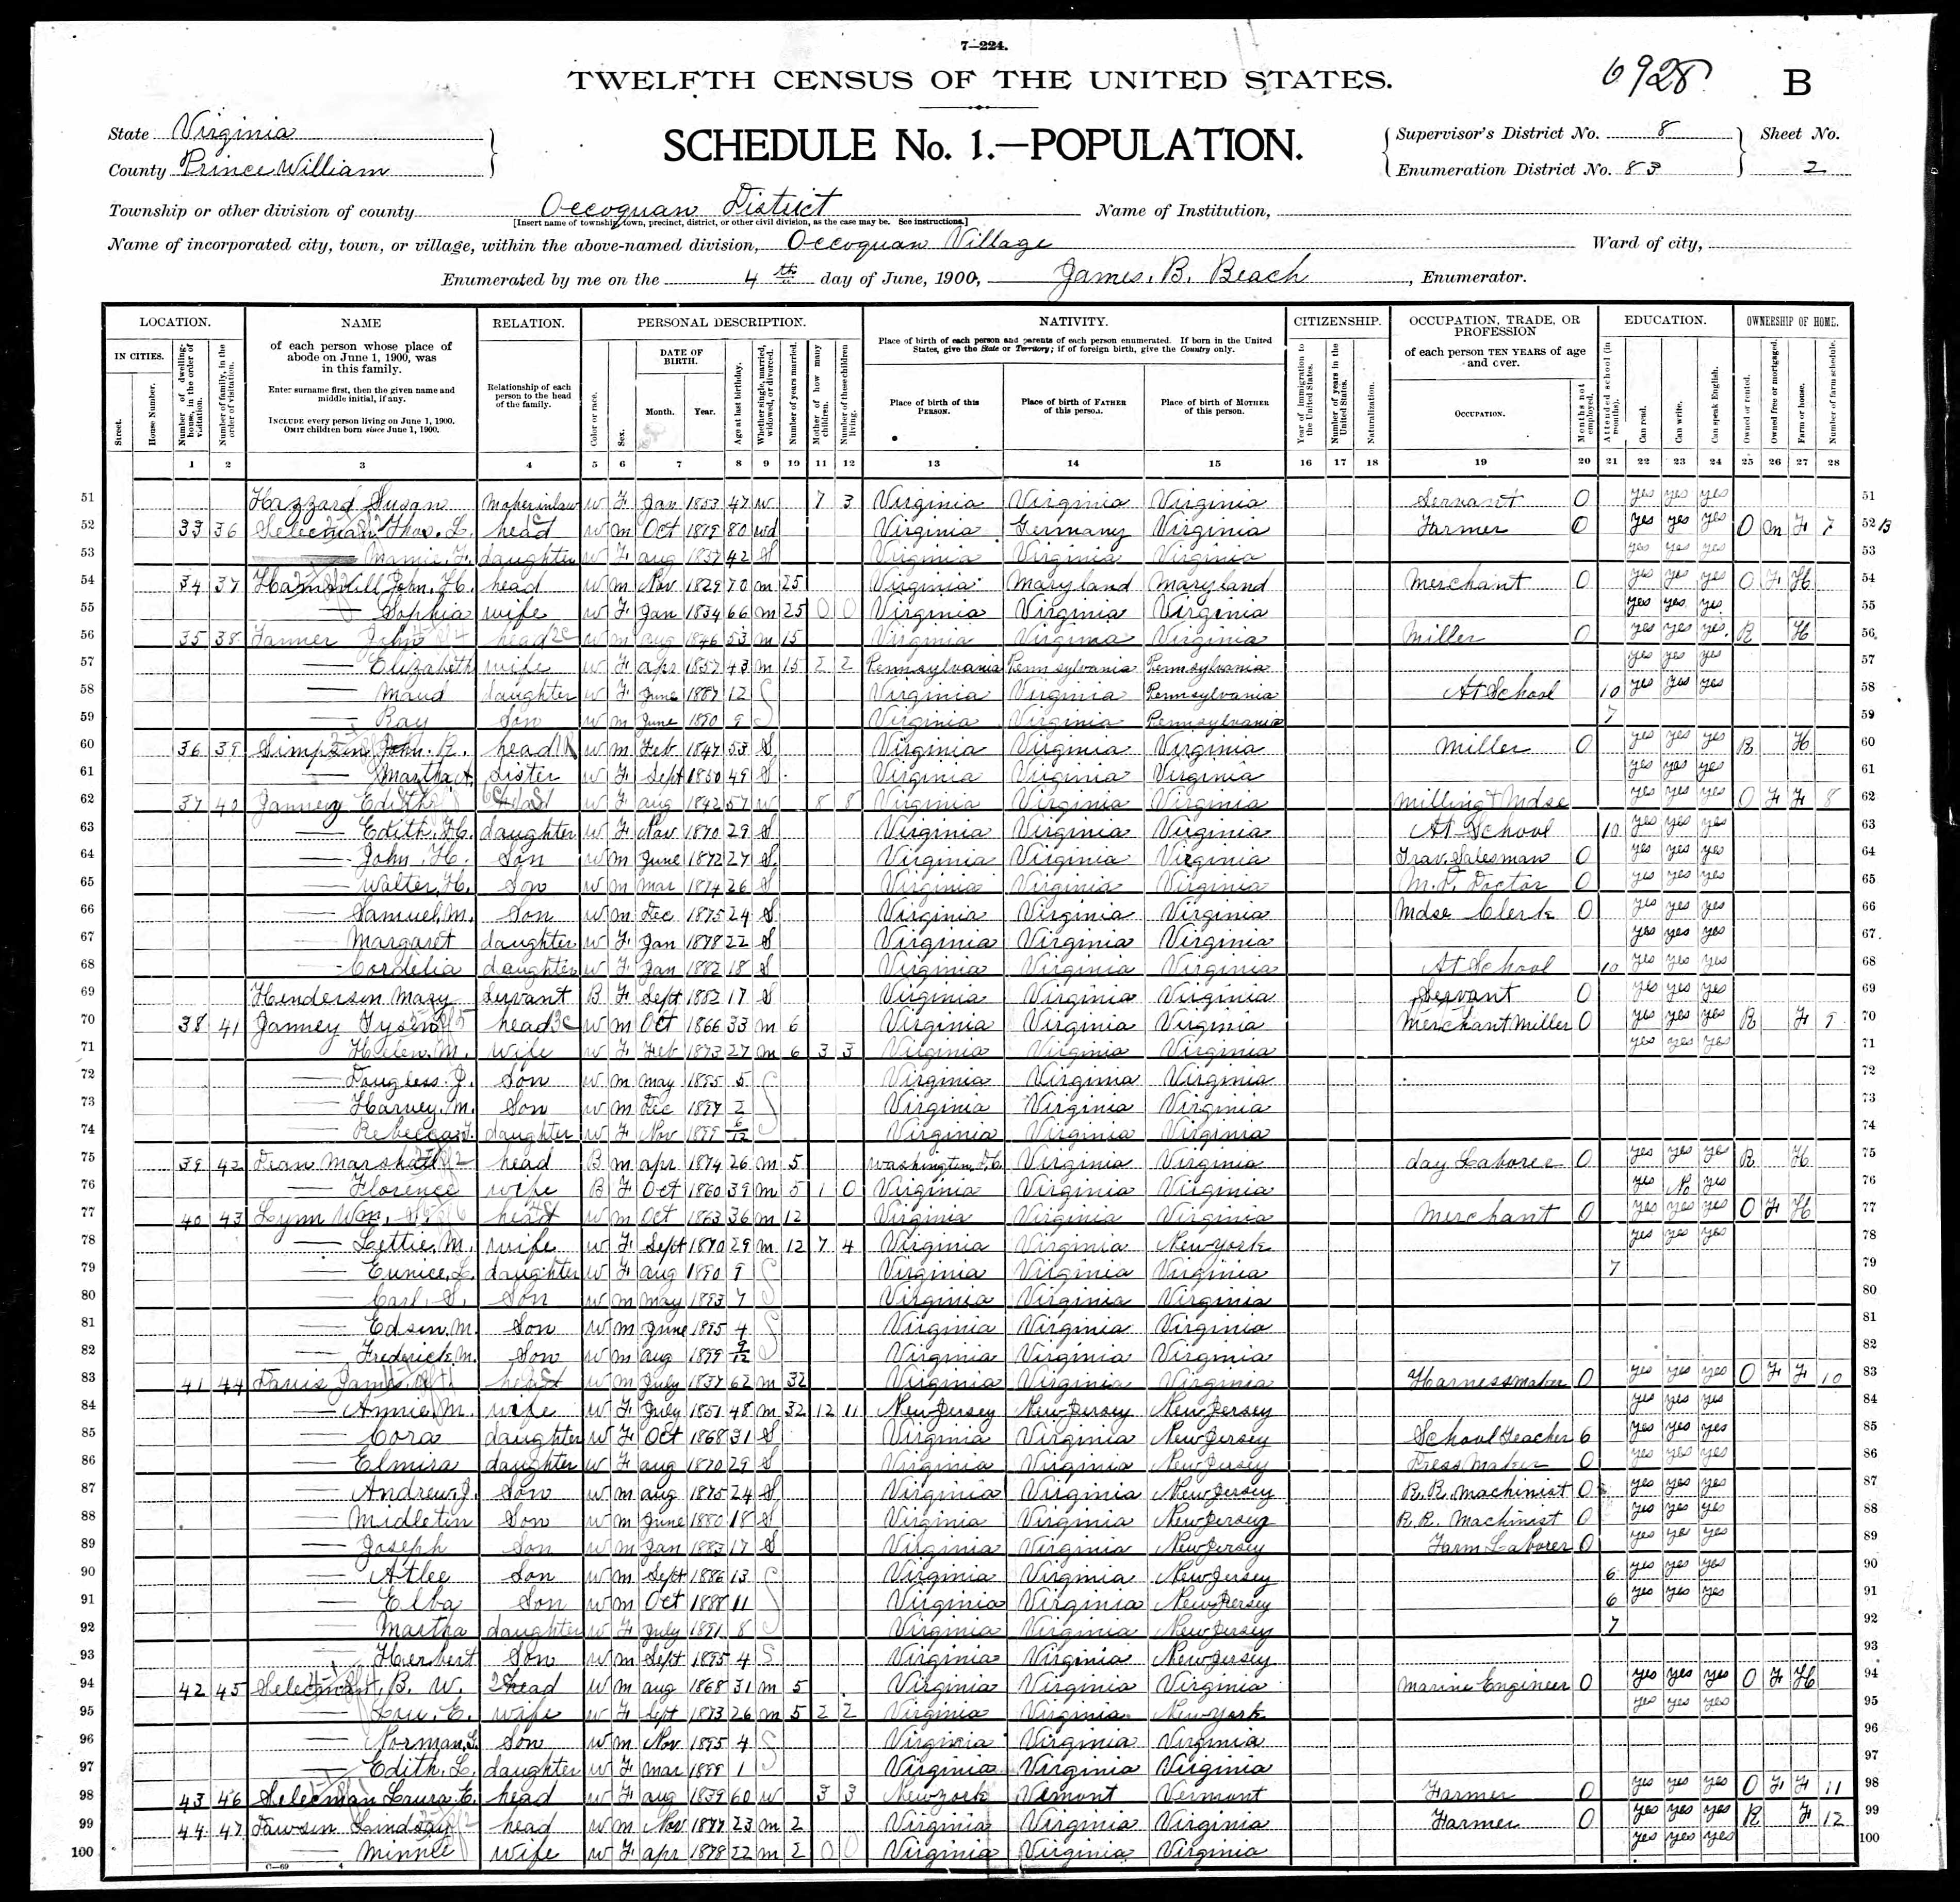 7—224.
6928
TWELFTH CENSUS OF THE UNITED STATES.
B
State Virginia
County Prince William
SCHEDULE No. 1.—POPULATION.
Supervisor's District No. 8
Enumeration District No. 83
Sheet No.
2
Township or other division of county Occoquan District
[Insert name of township, town, precinct, district, or other civil division, as the case may be. See instructions.]
Name of Institution,
Name of incorporated city, town, or village, within the above-named division, Occoquan Village
Ward of city,
Enumerated by me on the 4th day of June, 1900, James. B. Beach, Enumerator.
LOCATION. NAME RELATION. PERSONAL DESCRIPTION. NATIVITY. CITIZENSHIP. OCCUPATION, TRADE, OR PROFESSION EDUCATION. OWNERSHIP OF HOME.
IN CITIES.
Street.
House Number.
Number of dwelling-house, in the order of visitation.
Number of family, in the order of visitation.
of each person whose place of abode on June 1, 1900, was in this family.
Enter surname first, then the given name and middle initial, if any.
INCLUDE every person living on June 1, 1900.
OMIT children born since June 1, 1900.
Relationship of each person to the head of the family.
Color or race.
Sex.
DATE OF BIRTH.
Month. Year.
Age at last birthday.
Whether single, married, widowed, or divorced.
Number of years married.
Mother of how many children.
Number of these children living.
Place of birth of each person and parents of each person enumerated. If born in the United States, give the State or Territory; if of foreign birth, give the Country only.
Place of birth of this PERSON.
Place of birth of FATHER of this person.
Place of birth of MOTHER of this person.
Year of immigration to the United States.
Number of years in the United States.
Naturalization.
of each person TEN YEARS of age and over.
OCCUPATION.
Months not employed.
Attended school (in months).
Can read.
Can write.
Can speak English.
Owned or rented.
Owned free or mortgaged.
Farm or house.
Number of farm schedule.
1 2 3 4 5 6 7 8 9 10 11 12 13 14 15 16 17 18 19 20 21 22 23 24 25 26 27 28
51 Hazzard Susan W F Jan 1853 47 W 7 3 Virginia Virginia Virginia Servant 0 yes yes yes 51
52 33 36 Selecman Thos. L. head W m Oct 80 wd Virginia Germany Virginia Farmer 0 yes yes yes O m F 7 52 B
53 Mamie F. daughter W F aug 1857 42 S Virginia Virginia Virginia yes yes yes 53
54 34 37 Hammill John. H. head W m Nov 1829 70 m 25 Virginia Maryland Maryland Merchant 0 yes yes yes O F H 54
55 — Sophia wife W F Jan 1834 66 m 25 0 0 Virginia Virginia Virginia yes yes yes 55
56 35 38 John head W m aug 1846 53 m 15 Virginia Virginia Virginia Miller 0 yes yes yes R H 56
57 — Elizabeth wife W F apr 1857 43 m 15 2 2 Pennsylvania Pennsylvania Pennsylvania yes yes yes 57
58 — Maud daughter W F June 1887 12 S Virginia Virginia Pennsylvania At School 10 yes yes yes 58
59 — Ray Son W m June 1890 9 S Virginia Virginia Pennsylvania 7 59
60 36 39 Simpson John. R. head W m Feb 1847 53 S Virginia Virginia Virginia Miller 0 yes yes yes R H 60
61 — Martha A. sister W F Sept 1850 49 S Virginia Virginia Virginia yes yes yes 61
62 37 40 Janney Edith head W F aug 1842 57 W 8 8 Virginia Virginia Virginia Milling & Mdse yes yes yes O F F 8 62
63 — Edith. H. daughter W F Nov 1870 29 S Virginia Virginia Virginia At School 10 yes yes yes 63
64 — John. H. Son W m June 1872 27 S Virginia Virginia Virginia Trav. Salesman 0 yes yes yes 64
65 — Walter. H. Son W m Mar 1874 26 S Virginia Virginia Virginia M. D. Doctor 0 yes yes yes 65
66 — Samuel. M. Son W m Dec 1875 24 S Virginia Virginia Virginia Mdse Clerk 0 yes yes yes 66
67 — Margaret daughter W F Jan 1878 22 S Virginia Virginia Virginia yes yes yes 67
68 — Cordelia daughter W F Jan 1882 18 S Virginia Virginia Virginia At School 10 yes yes yes 68
69 Henderson Mary Servant B F Sept 1882 17 S Virginia Virginia Virginia Servant 0 yes yes yes 69
70 38 41 Janney Tyson head W m Oct 1866 33 m 6 Virginia Virginia Virginia Merchant Miller 0 yes yes yes R F 9 70
71 Helen. M. wife W F Feb 1873 27 m 6 3 3 Virginia Virginia Virginia yes yes yes 71
72 — Dougless. J. Son W m May 1895 5 S Virginia Virginia Virginia 72
73 — Harvey. M. Son W m Dec 1897 2 S Virginia Virginia Virginia 73
74 — Rebecca. daughter W F Nov 1899 6/12 S Virginia Virginia Virginia 74
75 39 42 Dean Marshall head B m apr 1874 26 m 5 Washington D.C. Virginia Virginia day Laborer 0 yes yes ye R H 75
76 — Florence wife B F Oct 1860 39 m 5 1 0 Virginia Virginia Virginia yes No yes 76
77 40 43 Lynn Wm. head W m Oct 1863 36 m 12 Virginia Virginia Virginia Merchant 0 yes yes yes O F H 77
78 — Lettie. M. wife W F Sept 1870 29 m 12 7 4 Virginia Virginia New York yes yes yes 78
79 — Eunice. L. daughter W F aug 1890 9 S Virginia Virginia Virginia 7 79
80 — Carl. S. Son W m May 1893 7 S Virginia Virginia Virginia 80
81 — Edson. M. Son W m June 1895 4 S Virginia Virginia Virginia 81
82 — Frederick. M. Son W m aug 1899 9/12 S Virginia Virginia Virginia 82
83 41 44 Davis James head W m July 1837 62 m 32 Virginia Virginia Virginia Harnessmaker 0 yes yes yes O F F 10 83
84 — Annie. M. wife W F July 1851 48 m 32 12 11 New Jersey New Jersey New Jersey yes yes yes 84
85 — Cora daughter W F Oct 1868 31 S Virginia Virginia New Jersey School Teacher 6 yes yes yes 85
86 — Elmira daughter W F aug 1870 29 S Virginia Virginia New Jersey Dress Maker 0 yes yes yes 86
87 — Andrew. J. Son W m aug 1875 24 S Virginia Virginia New Jersey R. R. Machinist 0 yes yes yes 87
88 — Midleton Son W m June 1880 18 S Virginia Virginia New Jersey R. R. Machinist 0 yes yes yes 88
89 — Joseph Son W m Jan 1883 17 S Virginia Virginia New Jersey Farm Laborer 0 yes ye yes 89
90 — Atlee Son W m Sept 1886 13 S Virginia Virginia New Jersey 6 yes yes yes 90
91 — Elba Son W m Oct 1888 11 S Virginia Virginia New Jersey 6 yes yes yes 91
92 — Martha daughter W F July 1891 8 S Virginia Virginia New Jersey 7 92
93 — Herbert Son W m Sept 1895 4 S Virginia Virginia New Jersey 93
94 42 45 Selecman. B. W. head W m aug 1868 31 m 5 Virginia Virginia Virginia Marine Engineer 0 yes yes yes O F H 94
95 — Lou. E. wife W F Sept 1873 26 m 5 2 2 Virginia Virginia New York yes yes yes 95
96 — Norman. L. Son W m Nov 1895 4 S Virginia Virginia Virginia 96
97 — Edith. L. daughter W F Mar 1899 1 S Virginia Virginia Virginia 97
98 43 46 Selecman Laura. E. head W F aug 1839 60 W 3 3 New York Vermont Vermont Farmer 0 yes yes yes O F F 11 98
99 44 47 Dawson Lindsay head W m Nov 1877 23 m 2 Virginia Virginia Virginia Farmer 0 yes yes yes R F 12 99
100 — Minnie wife W F apr 1878 22 m 2 0 0 Virginia Virginia Virginia yes yes yes 100
C—69 4